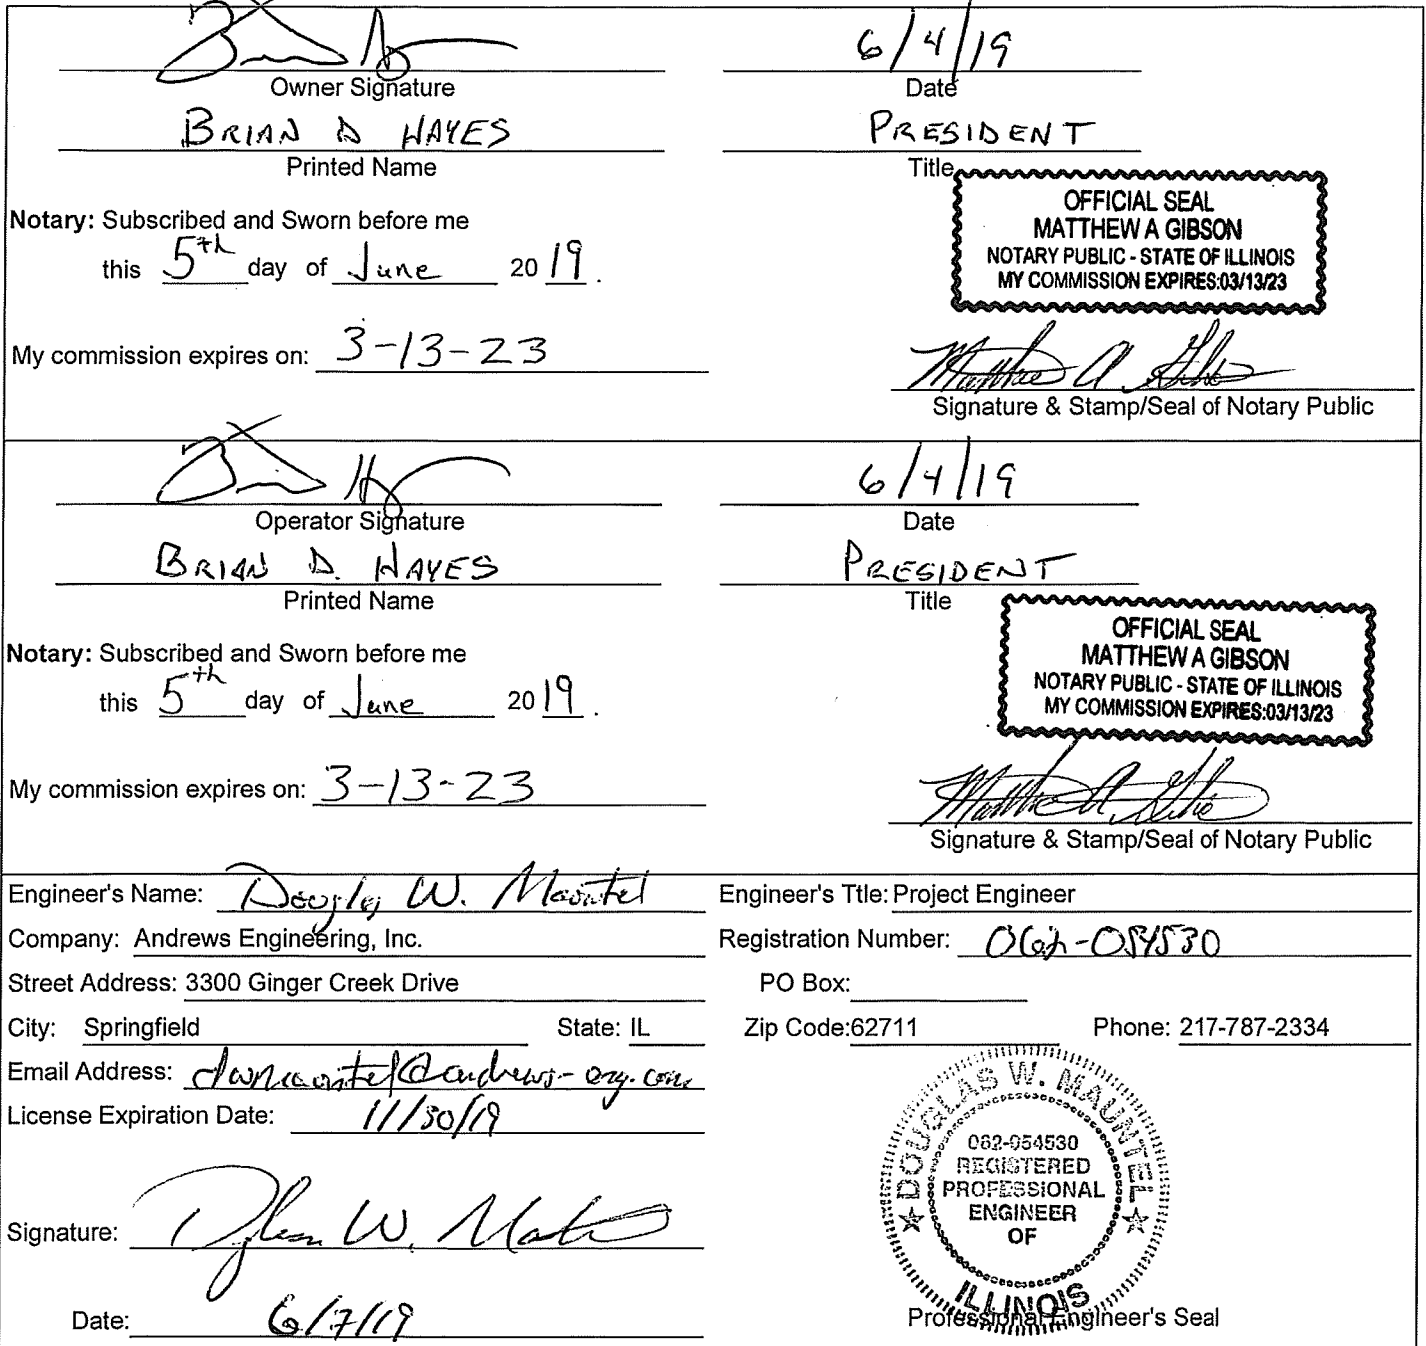 6/4/19
Owner Signature Date
BRIAN D HAYES PRESIDENT
Printed Name Title
OFFICIAL SEAL
MATTHEW A GIBSON
NOTARY PUBLIC - STATE OF ILLINOIS
MY COMMISSION EXPIRES:03/13/23
Notary: Subscribed and Sworn before me
this 5th day of June 2019.
My commission expires on: 3-13-23
Matthew A Gibson
Signature & Stamp/Seal of Notary Public
6/4/19
Operator Signature Date
BRIAN D. HAYES PRESIDENT
Printed Name Title
OFFICIAL SEAL
MATTHEW A GIBSON
NOTARY PUBLIC - STATE OF ILLINOIS
MY COMMISSION EXPIRES:03/13/23
Notary: Subscribed and Sworn before me
this 5th day of June 2019.
My commission expires on: 3-13-23
Matthew A Gibson
Signature & Stamp/Seal of Notary Public
Engineer's Name: Douglas W. Mauntel Engineer's Ttle: Project Engineer
Company: Andrews Engineering, Inc. Registration Number: 062-054530
Street Address: 3300 Ginger Creek Drive PO Box:
City: Springfield State: IL Zip Code:62711 Phone: 217-787-2334
Email Address: dwmauntel@andrews-eng.com
License Expiration Date: 11/30/19
DOUGLAS W. MAUNTEL
062-054530
REGISTERED
PROFESSIONAL
ENGINEER
OF
ILLINOIS
Signature: W.
Date: 6/7/19 Professional Engineer's Seal